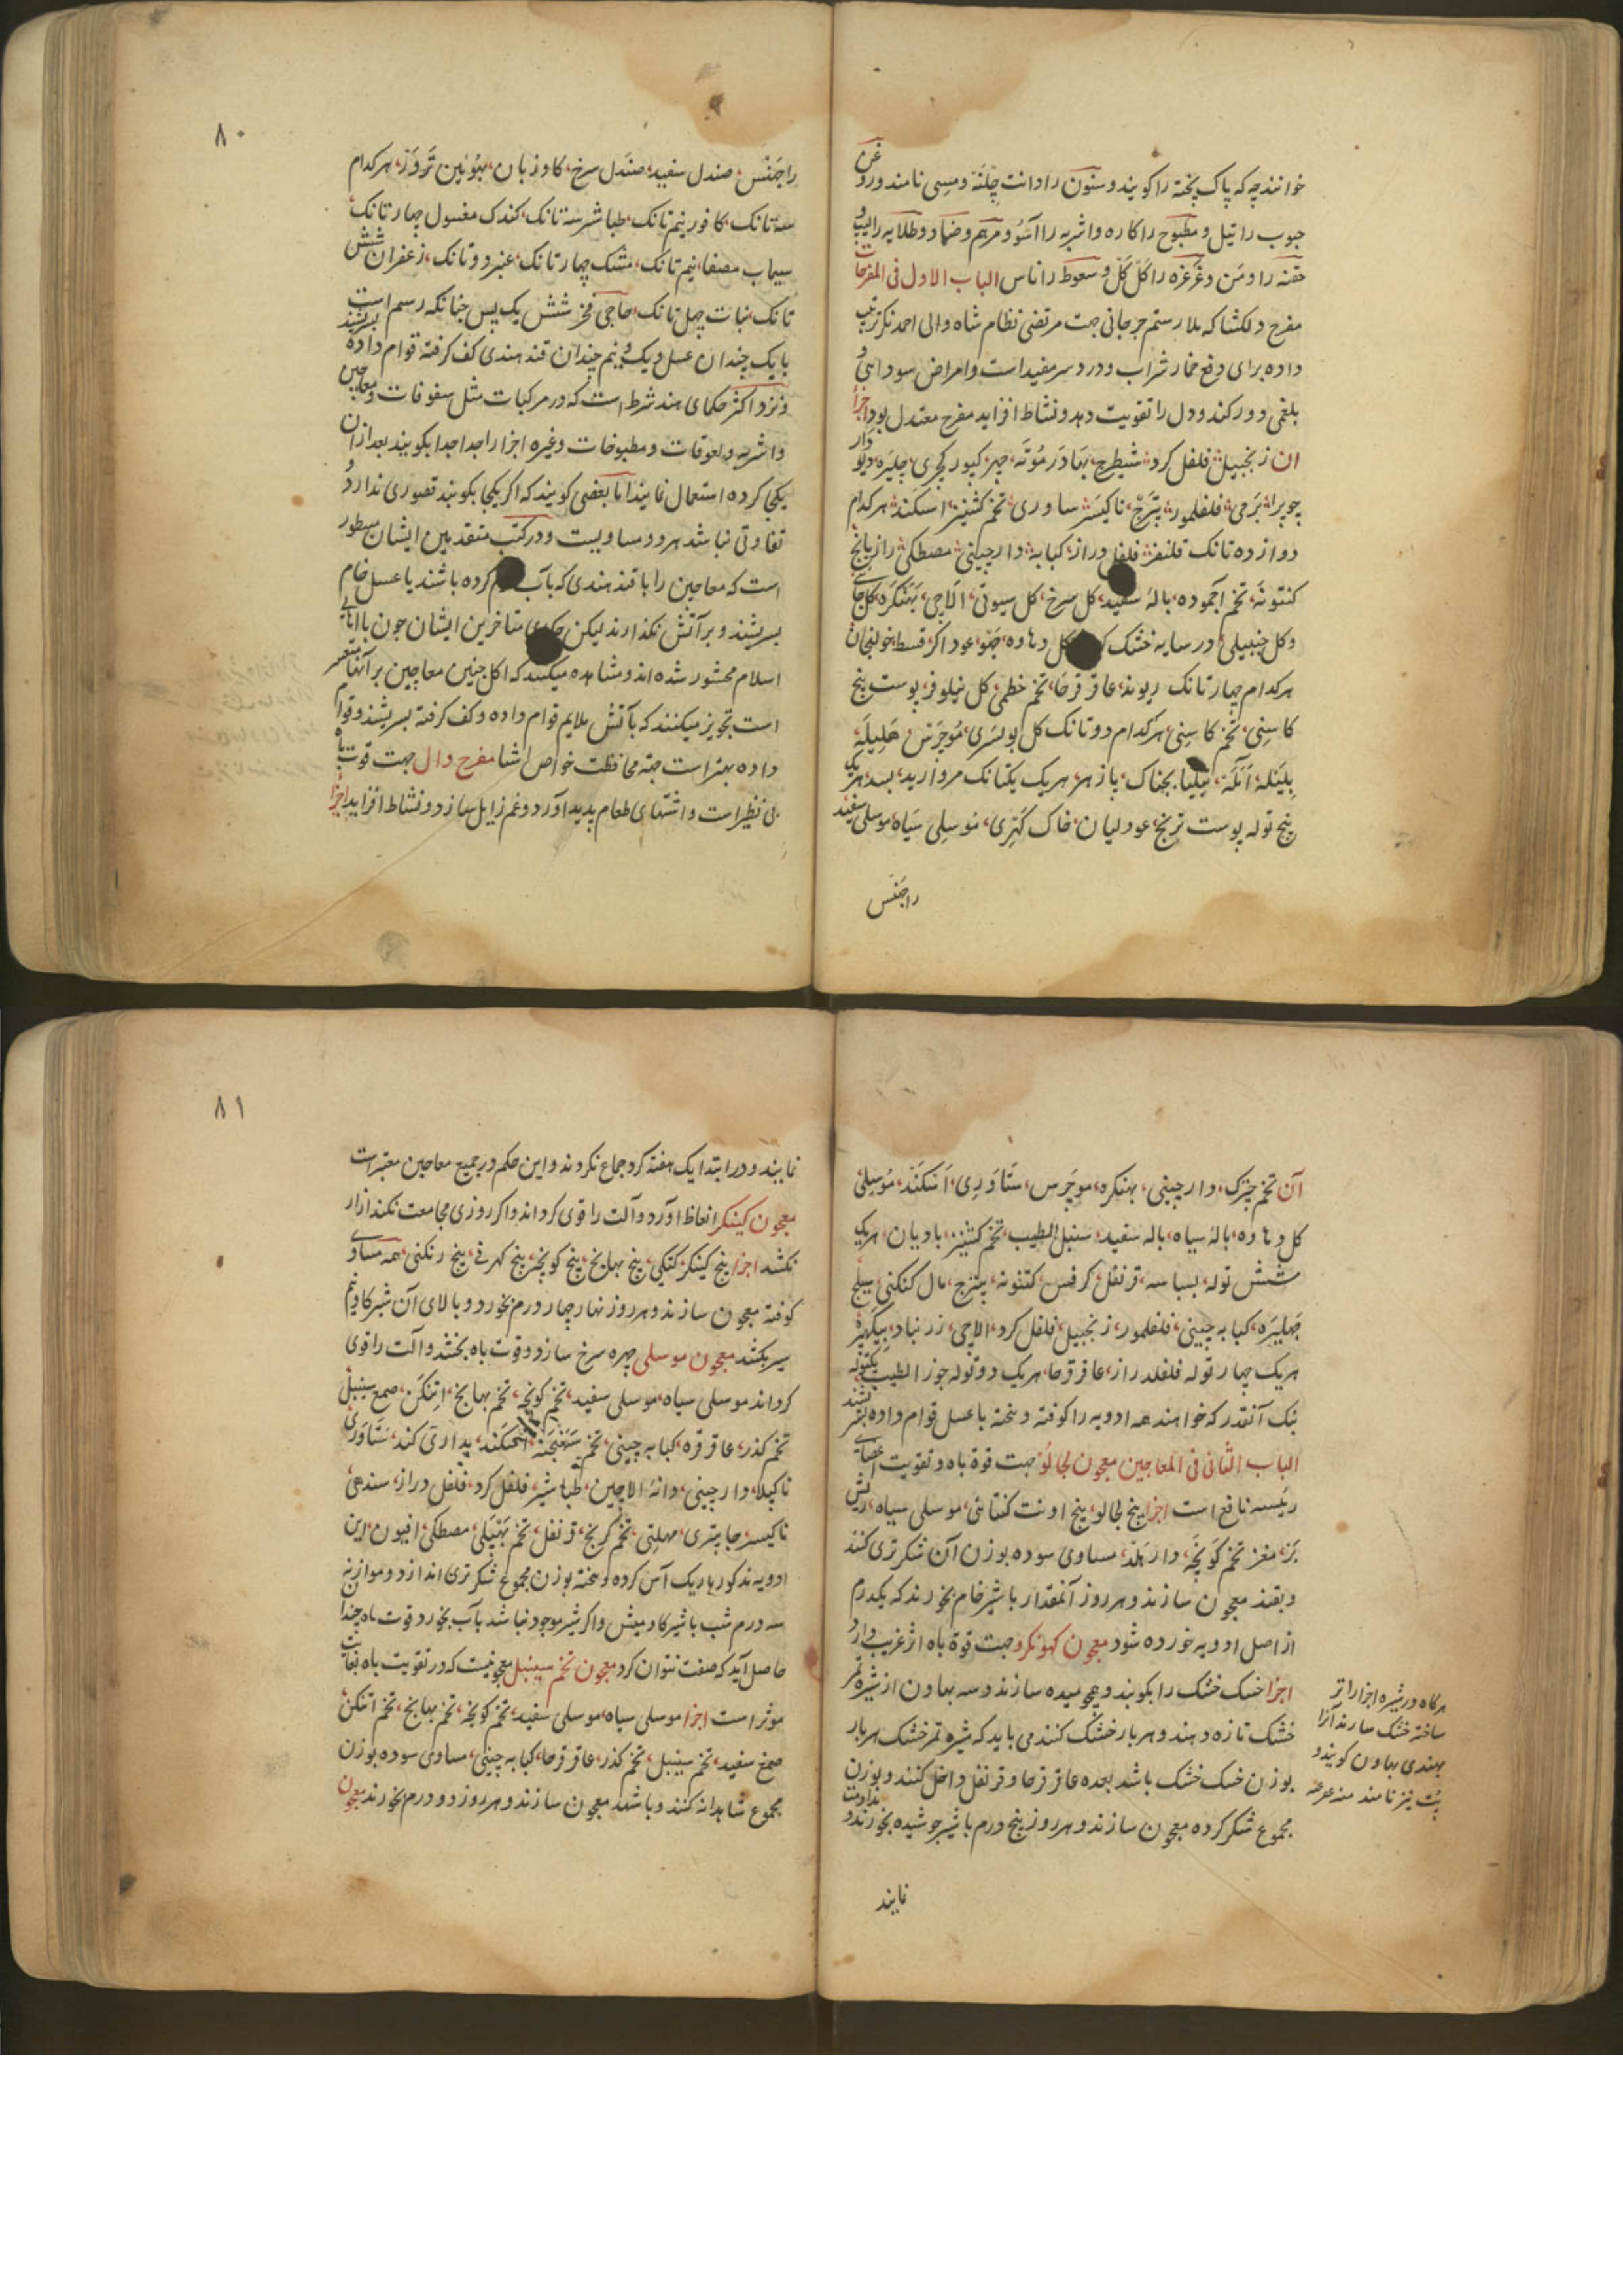 خوانند چه که پاک پخته را کویند و سنون را دانت چلنه و مسی نامند و روغن
حبوب را تیل و مطبوخ را کاره و اشربه را آسو و مرهم و ضماد و طلا یه را لیپ و
حقنه را و من و غرغره را کل کل و سعوط را ناس الباب الاول فی المفرحات
مفرح دلکشا که ملا رستم جرجانی جهت مرتضی نظام شاه والی احمد نکر ترتیب
داده برای دفع خمار شراب و درد سر مفید است و امراض سوداوی و
بلغمی دور کند و دل را تقویت دهد و نشاط افزاید مفرح معتدل بود اجزا
ان زنجبیل فلفل کرد شیطرج بهادر موته چیز کپور کچری چلیره دیو دار
چوپرا برمی فلفلمور پترج ناکیسر ستاوری تخم کشنیز اسکند هرکدام
دوازده تانک قلنفز فلفل دراز کبابه دارچینی مصطکی رازیانج
کنتونه تخم اجموده باله سفید کل سرخ کل سیوتی الاچی بهنکره کل جای
وکل چنبیلی در سایه خشک کل دهاوه عود اکر قسط خولنجان
هرکدام چهار تانک ریوند عاقرقرحا تخم خطمی کل نیلوفر پوست بیخ
کاسنی تخم کاسنی هرکدام دو تانک کل بولسری موچرس هلیله
بلیله آنله پازهر هریک یکتانک مروارید بسد هریک
پنج توله پوست ترنج عود لبان خاک موسلی سیاه موسلی سفید
راجنس
۸۰
راجنس صندل سفید صندل سرخ کاوزبان هرکدام
سه تانک کافور نیم تانک طباشیر سه تانک کندک مغسول چهار تانک
سیماب مصفا نیم تانک مشک چهار تانک عنبر دو تانک زعفران شش
تانک نبات چهل تانک شش یک پس چنانکه رسم است
با یک چندان عسل و یک و نیم چندان قند هندی کف کرفته قوام داده بسرشند
و نزد اکثر حکمای هند شرط است که در مرکبات مثل سفوفات و معاجین
و اشربه و لعوقات و مطبوخات و غیره اجزا را جدا جدا بکوبند بعد ازان
یکجا کرده استعمال نمایند اما بعضی کویند که اکر یکجا بکوبند قصوری ندارد و
تفاوتی نباشد هر دو مساویست و در کتب متقدمین ایشان مسطور
است که معاجین را با قند هندی که بآب کرده باشند یا عسل خام
بسریشند و بر آتش نکذارند لیکن حکمای متاخرین ایشان چون با اهالی
اسلام محشور شده اند و مشاهده میکنند که اکل چنین معاجین بر آنها متعسر
است تجویز میکنند که بآتش ملایم قوام داده و کف کرفته بسریشند و قوام
داده بهتر است جهة محافظت خواص اشیا مفرح دال جهت قوت باه
بی نظیر است و اشتهای طعام پدید اورد و غم زایل سازد و نشاط افزاید اجزا
آن تخم دارچینی بهنکره موچرس ستاوری اسکند موسلی
کل دهاوه باله سیاه باله سفید سنبل الطیب تخم کشنیز بادیان هریک
شش توله بسباسه قرنفل کرفس کتنونه پترج مال کنکنی
کبابه چینی فلفلمور زنجبیل فلفل کرد الاچی زرنباد
هریک چهار توله فلفلدراز عاقرقرحا هریک دو توله جوز الطیب یکتوله
بنک آنقدر که خواهند همه ادویه را کوفته و بیخته با عسل قوام داده بسرشند
الباب الثانی فی المعاجین معجون لجالو جهت قوة باه و تقویت اعضای
رئیسه نافع است اجزا بیخ لجالو بیخ اونت کنتائی موسلی سیاه ریش
بز مغز تخم کونچه دار هلد مساوی سوده بوزن آن شکر تری کنند
و بقند معجون سازند و هر روز آنمقدار با شیر خام بخورند که یکدرم
از اصل ادویه خورده شود معجون کهونکرو جهت قوة باه اثر غریب دارد
اجزا خسک خشک را بکوبند و همچو میده سازند و سه بهاون از شیره تمر
خشک تازه دهند و هر بار خشک کنند می باید که شیره تمر خشک هر بار
بوزن خسک خشک باشد بعده عاقرقرحا و قرنفل داخل کنند و بوزن
مجموع شکر کرده معجون سازند و هر روز پنج درم با شیر جوشیده بخورند و مداومت
نمایند
هرکاه در شیره اجزا را تر
ساخته خشک سازند آنرا
بهندی بهاون کویند و
پت نیز نامند منه
۸۱
نمایند و در ابتدا یک هفته کرد جماع نکردند و این حکم در جمیع معاجین معتبر است
معجون کینکر انعاظ اورد و آلت را قوی کرداند و اکر روزی مجامعت نکند ازار
بکشد اجزا بیخ کینکر کتکی بیخ بهانچ بیخ کونچ بیخ کهرنی بیخ رنکنی همه مساوی
کوفته معجون سازند و هر روز نهار چهار درم بخورد و بالای آن شیر کاو نیم
سیر بکشد معجون موسلی چهره سرخ سازد و قوت باه بخشد و آلت را قوی
کرداند موسلی سیاه موسلی سفید تخم کونچه تخم بهانچ اتنکن صمغ سینبل
تخم کذر عاقرقره کبابه چینی تخم اسکند بداری کند ستاوری
ناکیلا دارچینی دانه الاچین طباشیر فلفل کرد فلفل دراز سندهی
ناکیسر جاپتری مهلتی تخم کرنج قرنفل تخم پیپلی مصطکی افیون این
ادویه مذکور باریک آس کرده و بیخته بوزن مجموع شکر تری اندازد و موازنه
سه درم شب با شیر کاومیش و اکر شیر موجود نباشد بآب بخورد قوت باه چندا
حاصل آید که صفت نتوان کرد معجون تخم سینبل معجونیست که در تقویت باه بغایت
موثر است اجزا موسلی سیاه موسلی سفید تخم کونچه تخم بهانچ تخم اتنکن
صمغ سفید تخم سینبل تخم کذر عاقرقرحا کبابه چینی مساوی سوده بوزن
مجموع شاهدانه کنند و با شهد معجون سازند و هر روز دو درم بخورند معجون